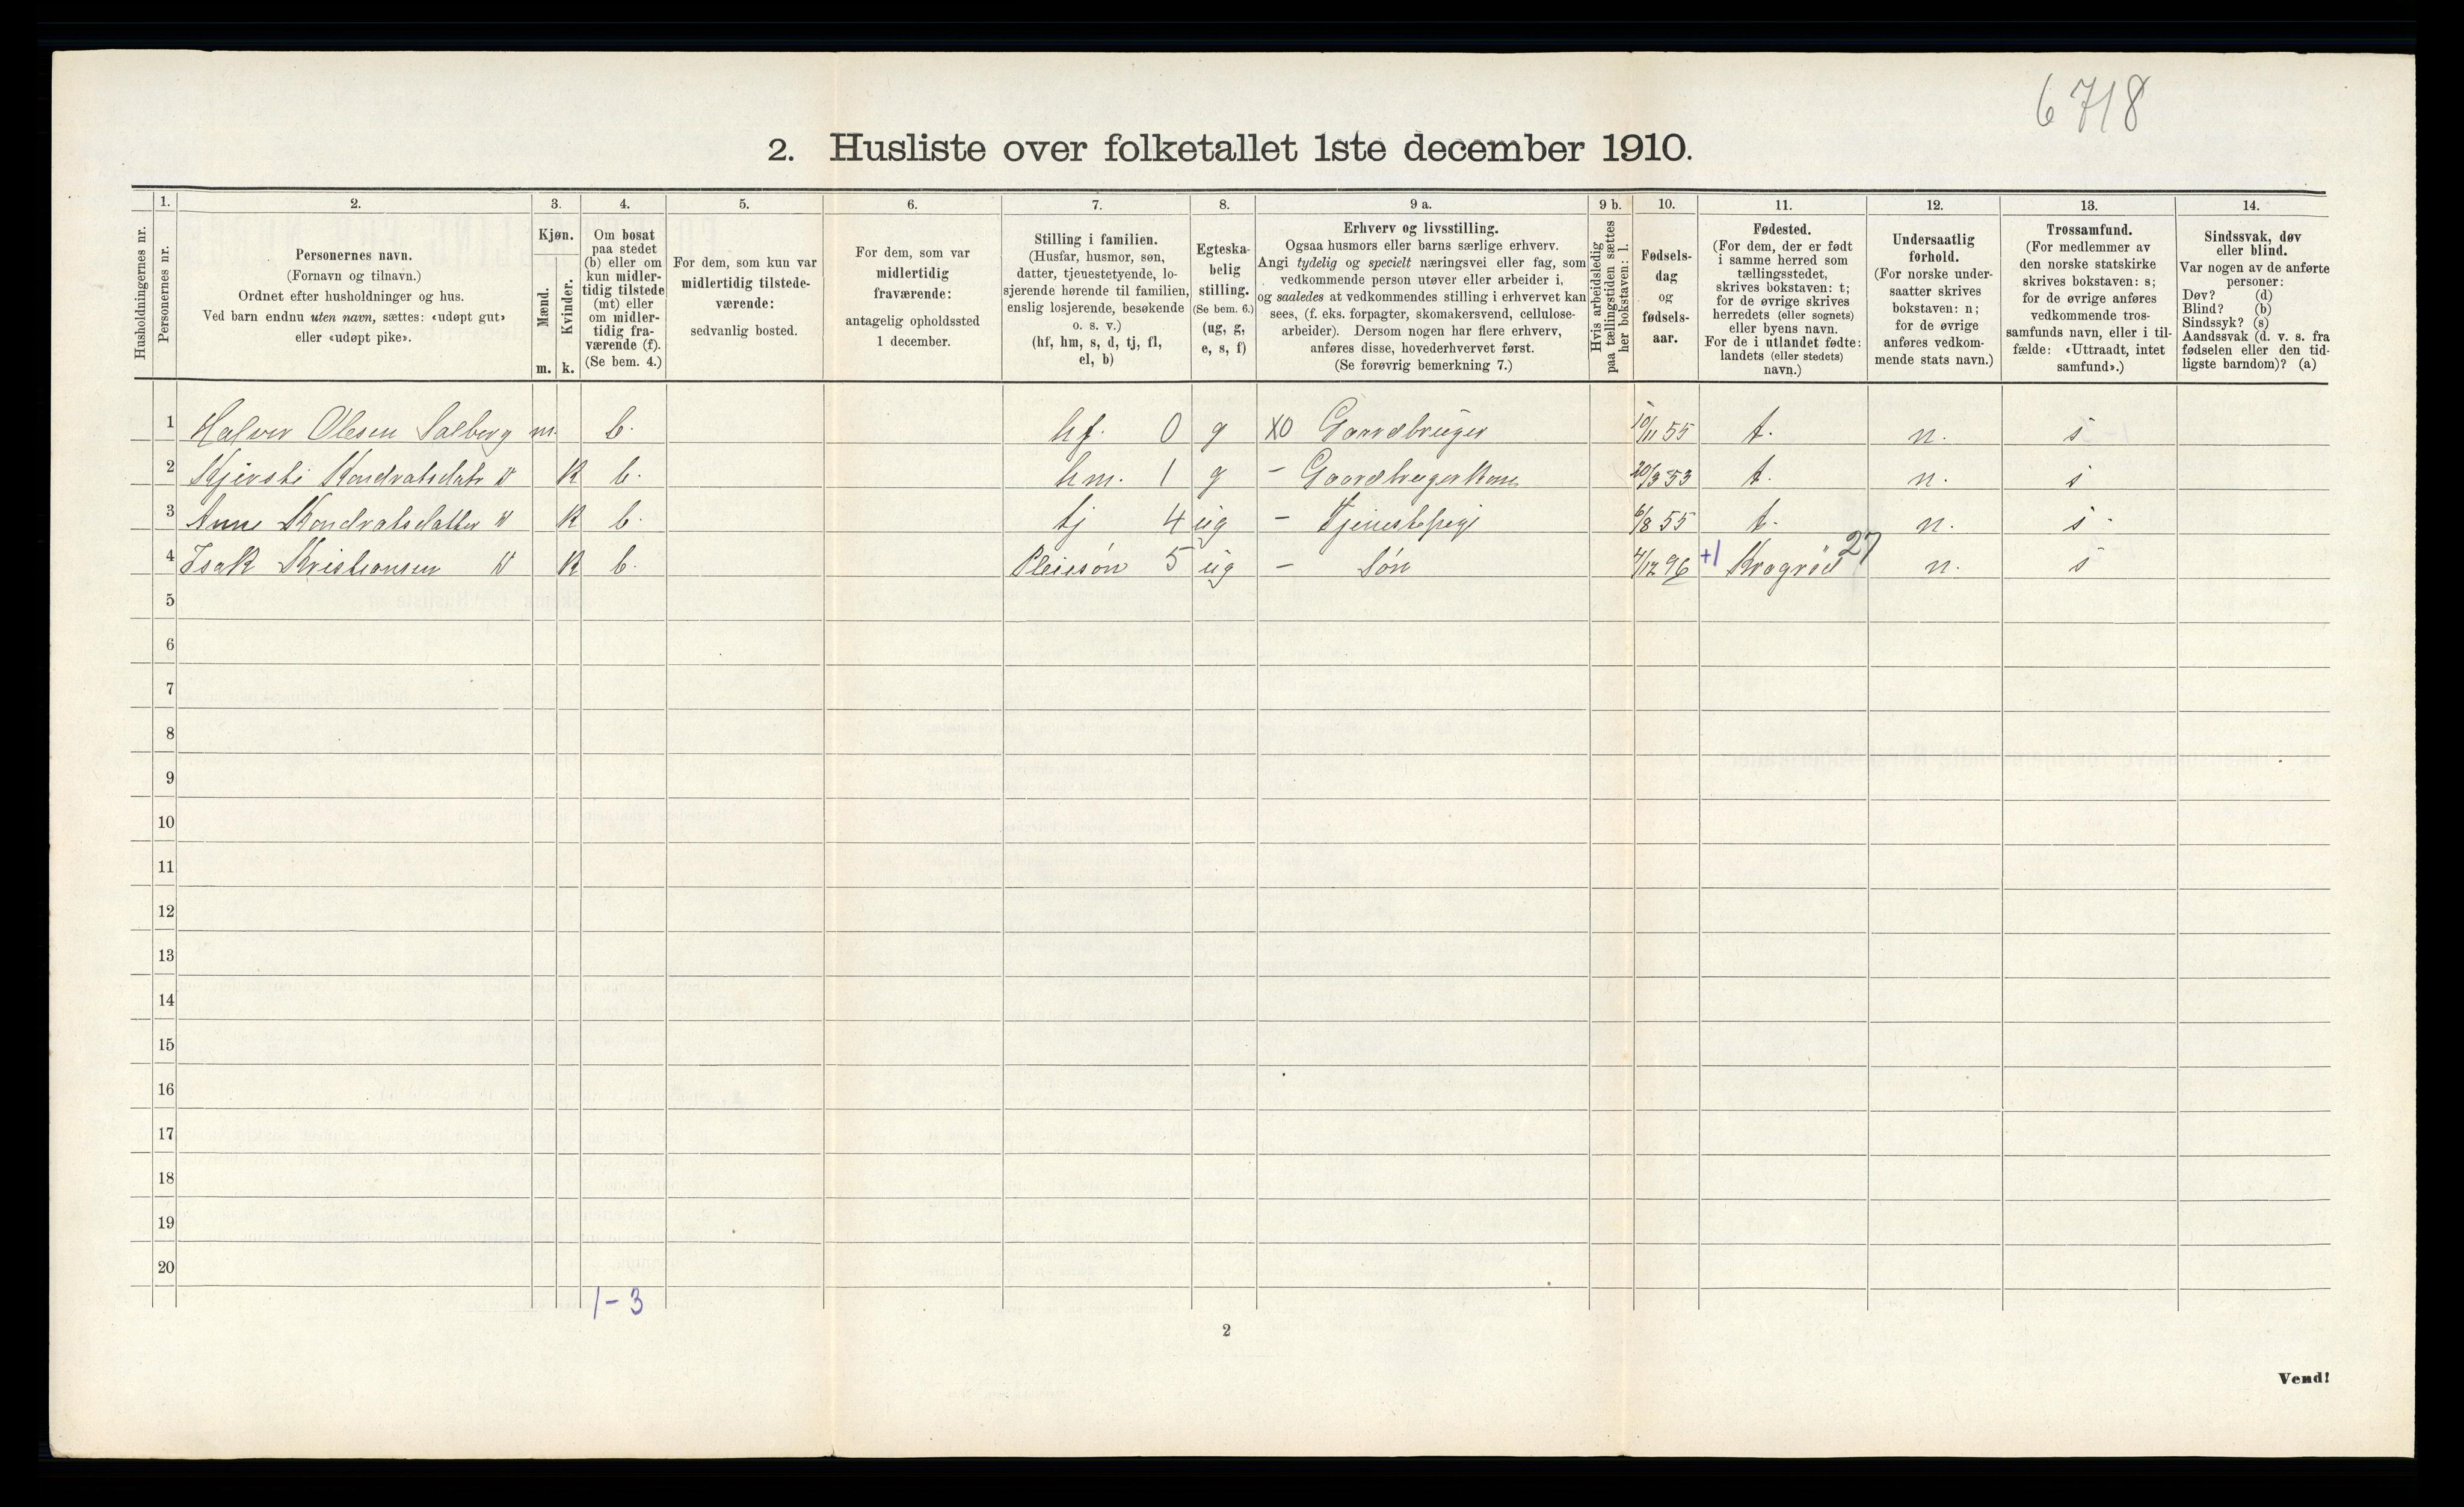 6718
2. Husliste over folketallet 1ste december 1910.
1. 2. 3. 4. 5. 6. 7. 8. 9 a. 9 b. 10. 11. 12. 13. 14.
Husholdningernes nr.
Personernes nr.
Personernes navn.
(Fornavn og tilnavn.)
Ordnet efter husholdninger og hus.
Ved barn endnu uten navn, sættes: «udøpt gut»
eller «udøpt pike».
Kjøn.
Mænd.
m.
Kvinder.
k.
Om bosat
paa stedet
(b) eller om
kun midler-
tidig tilstede
(mt) eller
om midler-
tidig fra-
værende (f).
(Se bem. 4.)
For dem, som kun var
midlertidig tilstede-
værende:
sedvanlig bosted.
For dem, som var
midlertidig
fraværende:
antagelig opholdssted
1 december.
Stilling i familien.
(Husfar, husmor, søn,
datter, tjenestetyende, lo-
sjerende hørende til familien,
enslig losjerende, besøkende
o. s. v.)
(hf, hm, s, d, tj, fl,
el, b)
Egteska-
belig
stilling.
(Se bem. 6.)
(ug, g,
e, s, f)
Erhverv og livsstilling.
Ogsaa husmors eller barns særlige erhverv.
Angi tydelig og specielt næringsvei eller fag, som
vedkommende person utøver eller arbeider i,
og saaledes at vedkommendes stilling i erhvervet kan
sees, (f. eks. forpagter, skomakersvend, cellulose-
arbeider). Dersom nogen har flere erhverv,
anføres disse, hovederhvervet først.
(Se forøvrig bemerkning 7.)
Hvis arbeidsledig
paa tællingstiden sættes
her bokstaven: l.
Fødsels-
dag
og
fødsels-
aar.
Fødested.
(For dem, der er født
i samme herred som
tællingsstedet,
skrives bokstaven: t;
for de øvrige skrives
herredets (eller sognets)
eller byens navn.
For de i utlandet fødte:
landets (eller stedets)
navn.)
Undersaatlig
forhold.
(For norske under-
saatter skrives
bokstaven: n;
for de øvrige
anføres vedkom-
mende stats navn.)
Trossamfund.
(For medlemmer av
den norske statskirke
skrives bokstaven: s;
for de øvrige anføres
vedkommende tros-
samfunds navn, eller i til-
fælde: «Uttraadt, intet
samfund».)
Sindssvak, døv
eller blind.
Var nogen av de anførte
personer:
Døv? (d)
Blind? (b)
Sindssyk? (s)
Aandssvak (d. v. s. fra
fødselen eller den tid-
ligste barndom)? (a)
1 Halvor Olesen Salberg m. b. hf. 0 g X0 Gaardbruger 10/11 55 t. n. s
2 Kjersti Kondratsdatr k b. hm. 1 g - Gaardbrugerkone 20/3 53 t. n. s
3 Anne Kondratsdatter k b. tj 4 ug - Tjenestepige 6/8 55 t. n. s
4 Isak Kristiansen k b. Pleiesøn 5 ug - Søn 4/12 96 +1 Kragrøe 27 n. s
5
6
7
8
9
10
11
12
13
14
15
16
17
18
19
20
1-3
2
Vend!